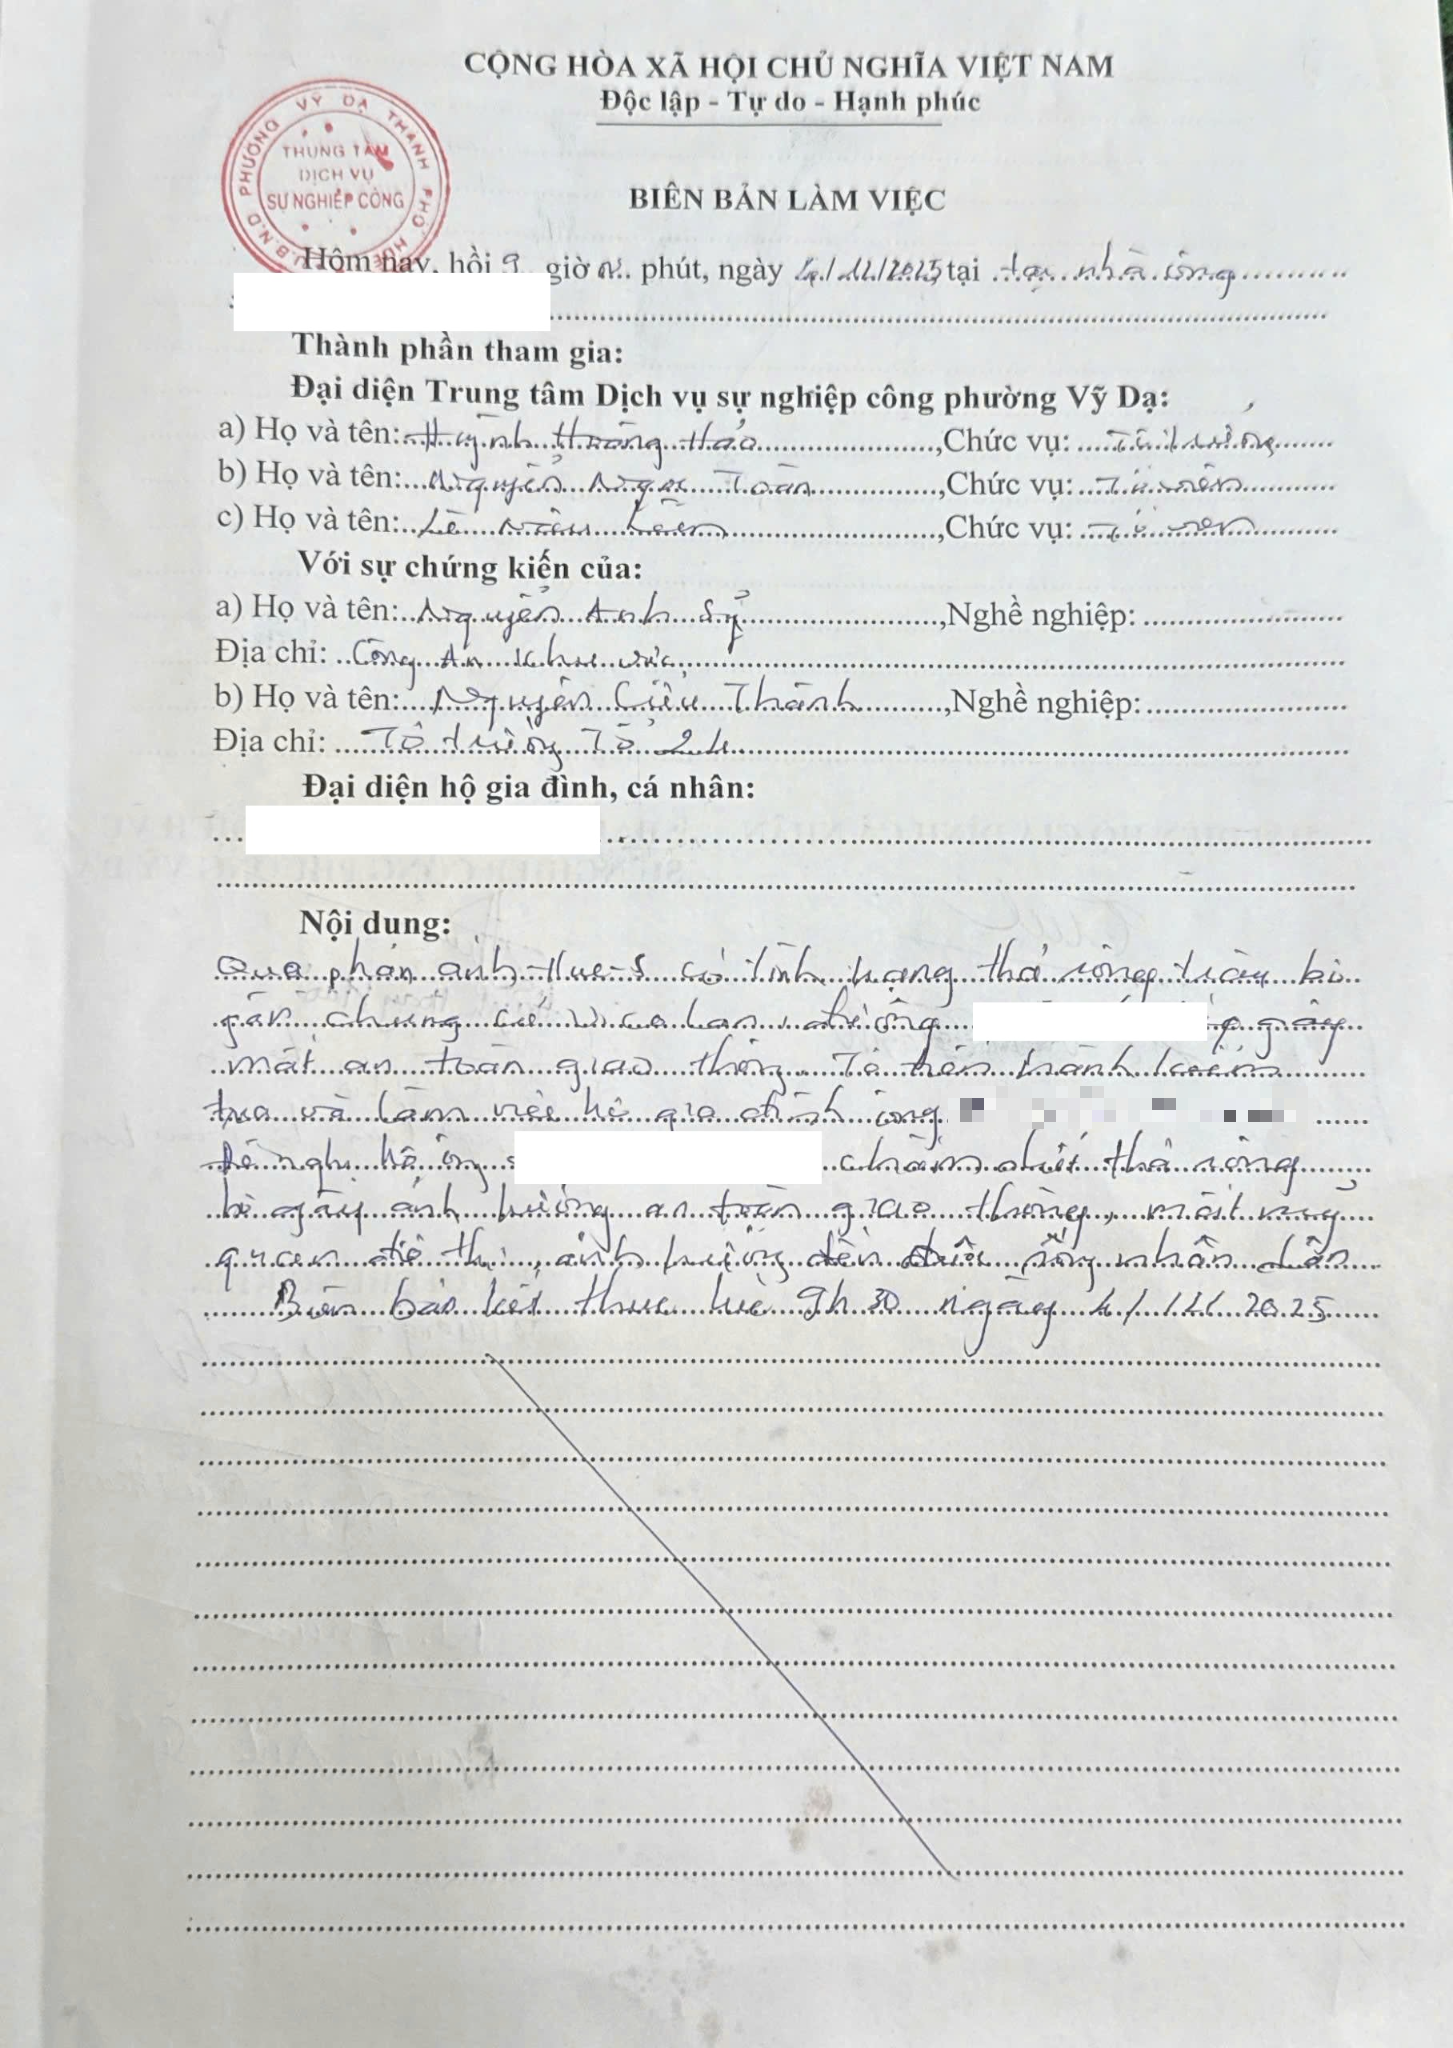 CỘNG HÒA XÃ HỘI CHỦ NGHĨA VIỆT NAM
Độc lập - Tự do - Hạnh phúc
U.B.N.D PHƯỜNG VỸ DẠ THÀNH PHỐ HUẾ
TRUNG TÂM
DỊCH VỤ
SỰ NGHIỆP CÔNG
BIÊN BẢN LÀM VIỆC
Hôm nay, hồi 9 giờ phút, ngày 4/12/2025 tại tại nhà ông
Thành phần tham gia:
Đại diện Trung tâm Dịch vụ sự nghiệp công phường Vỹ Dạ:
a) Họ và tên: Huỳnh Hoàng Hảo, Chức vụ: Tổ trưởng
b) Họ và tên: Nguyễn Ngọc Toàn, Chức vụ: Tổ viên
c) Họ và tên: Lê, Chức vụ: Tổ viên
Với sự chứng kiến của:
a) Họ và tên: Nguyễn Anh Sỹ, Nghề nghiệp:
Địa chỉ: Công An khu vực
b) Họ và tên: Nguyễn Cửu Thành, Nghề nghiệp:
Địa chỉ: Tổ trưởng Tổ 24
Đại diện hộ gia đình, cá nhân:
Nội dung:
Qua phản ánh Hue-S có tình trạng thả rông trâu bò
gần chung cư Vicoland, đường gây
mất an toàn giao thông. Tổ tiến hành kiểm
tra và làm việc hộ gia đình ông
Đề nghị hộ ông chấm dứt thả rông
bò gây ảnh hưởng an toàn giao thông, mất mỹ
quan đô thị, ảnh hưởng đến đời sống nhân dân
Biên bản kết thúc lúc 9h30 ngày 4/12/2025